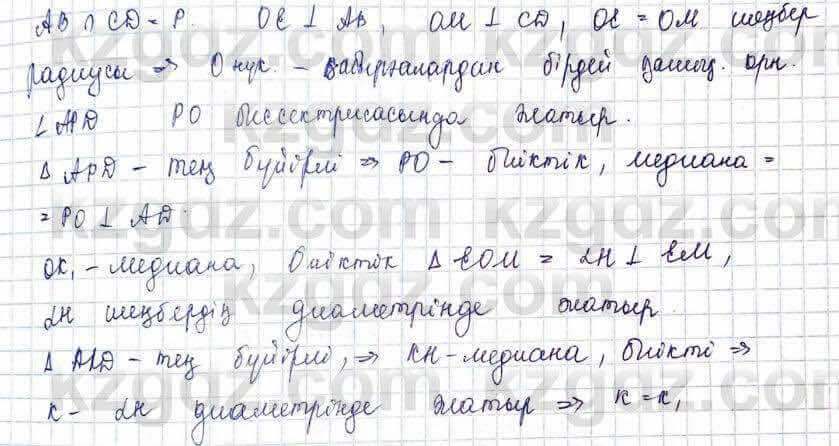 AB ∩ CD = P. OE ⊥ AB, OM ⊥ CD, OE = OM шеңбер
радиусы => O нүк. - қабырғалардан бірдей қашық. орн.
∠APD PO биссектрисасында жатыр.
Δ APD - тең бүйірлі => PO - биіктік, медиана =
= PO ⊥ AD.
OK₁ - медиана, биіктік Δ EOM = LH ⊥ EM,
LH шеңбердің диаметрінде жатыр
Δ ALD - тең бүйірлі, => KH - медиана, биікті =>
K - LH диаметрінде жатыр => K = K₁
kzgdz.com